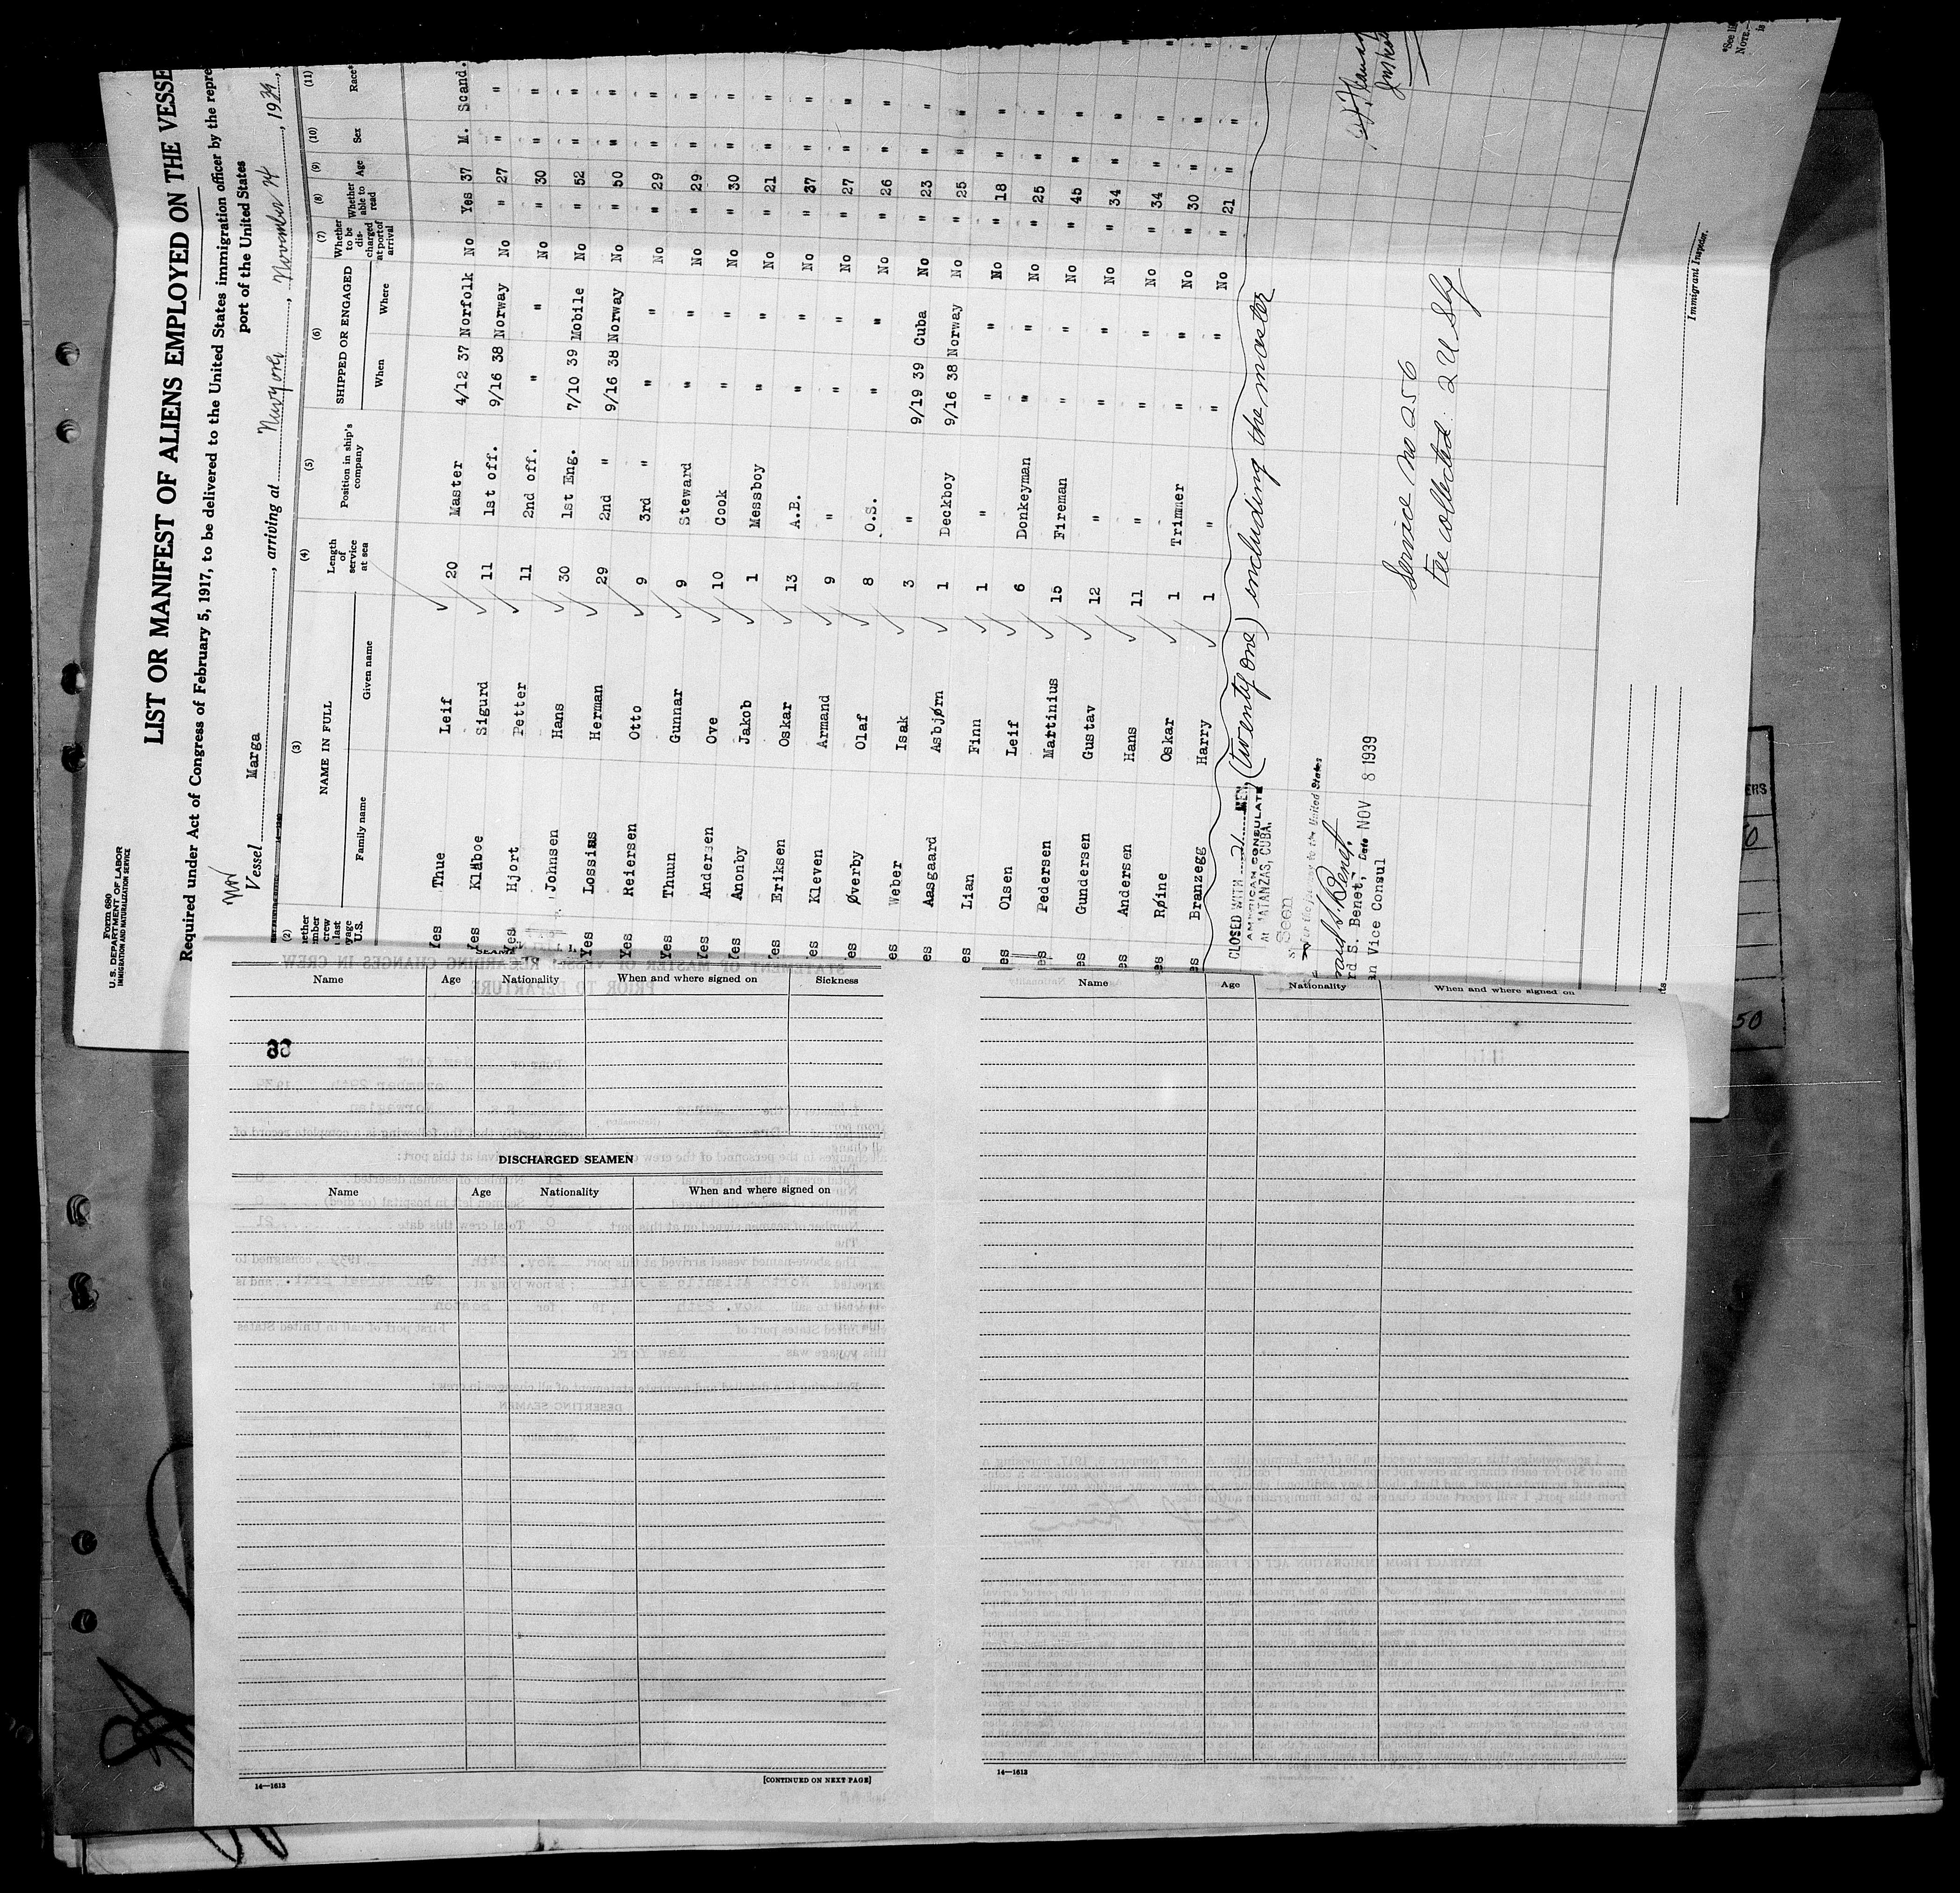 Form 680
U. S. DEPARTMENT OF LABOR
IMMIGRATION AND NATURALIZATION SERVICE
LIST OR MANIFEST OF ALIENS EMPLOYED ON THE VESSE
Required under Act of Congress of February 5, 1917, to be delivered to the United States immigration officer by the repre
port of the United States
Vessel Marga, arriving at New york, November 24, 1939,
(2) (3) (4) (5) (6) (7) (8) (9) (10) (11)
NAME IN FULL
Family name Given name
Length of service at sea
Position in ship's company
SHIPPED OR ENGAGED
When Where
Whether to be discharged at port of arrival
Whether able to read
Age Sex Race*
Yes Thue Leif 20 Master 4/12 37 Norfolk No Yes 37 M. Scand.
Yes Klåboe Sigurd 11 1st off. 9/16 38 Norway No " 27 " "
Yes Hjort Petter 11 2nd off. " " No " 30 " "
Johnsen Hans 30 1st Eng. 7/10 39 Mobile No " 52 " "
Yes Lossius Herman 29 2nd " 9/16 38 Norway No " 50 " "
Yes Reiersen Otto 9 3rd " " " No " 29 " "
Yes Thuun Gunnar 9 Steward " " No " 29 " "
Yes Andersen Ove 10 Cook " " No " 30 " "
Yes Anonby Jakob 1 Messboy " " No " 21 " "
Yes Eriksen Oskar 13 A.B. " " No " 37 " "
es Kleven Armand 9 " " " No " 27 " "
es Øverby Olaf 8 O.S. " " No " 26 " "
es Weber Isak 3 " 9/19 39 Cuba No " 23 " "
es Aasgaard Asbjørn 1 Deckboy 9/16 38 Norway No " 25 " "
es Lian Finn 1 " " " No " 18 " "
es Olsen Leif 6 Donkeyman " " No " 25 " "
es Pedersen Martinius 15 Fireman " " No " 45 " "
es Gundersen Gustav 12 " " " No " 34 " "
es Andersen Hans 11 " " " No " 34 " "
es Røine Oskar 1 Trimmer " " No " 30 " "
es Branzegg Harry 1 " " " No " 21 " "
CLOSED WITH 21 MEN, (twenty one) including the master
AMERICAN CONSULATE
AT MATANZAS, CUBA.
Seen
to the United States
rd S. Benet, Date NOV 8 1939
an Vice Consul
Service no 256
fee collected
Immigrant Inspector.
*See li
NOTE.
ERS
50
Name Age Nationality When and where signed on Sickness
88
DISCHARGED SEAMEN
Name Age Nationality When and where signed on
14—1613
[CONTINUED ON NEXT PAGE]
Name Age Nationality When and where signed on
14—1613